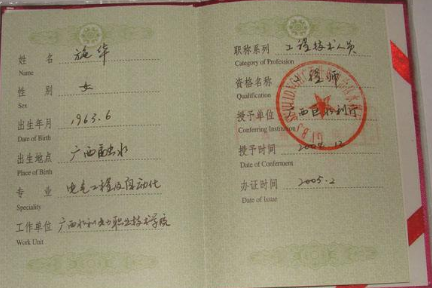 姓 名 施华
Name
性 别 女
Sex
出生年月 1963.6
Date of Birth
出生地点 广西
Place of Birth
专 业 电气工程及自动化
Speciality
工作单位 广西水利电力职业技术学院
Work Unit
职称系列 工程技术人员
Category of Profession
资格名称 工程师
Qualification
授予单位 广西区水利厅
Conferring Institution
授予时间 12
Date of Conferment
办证时间 2005.2
Date of Issue